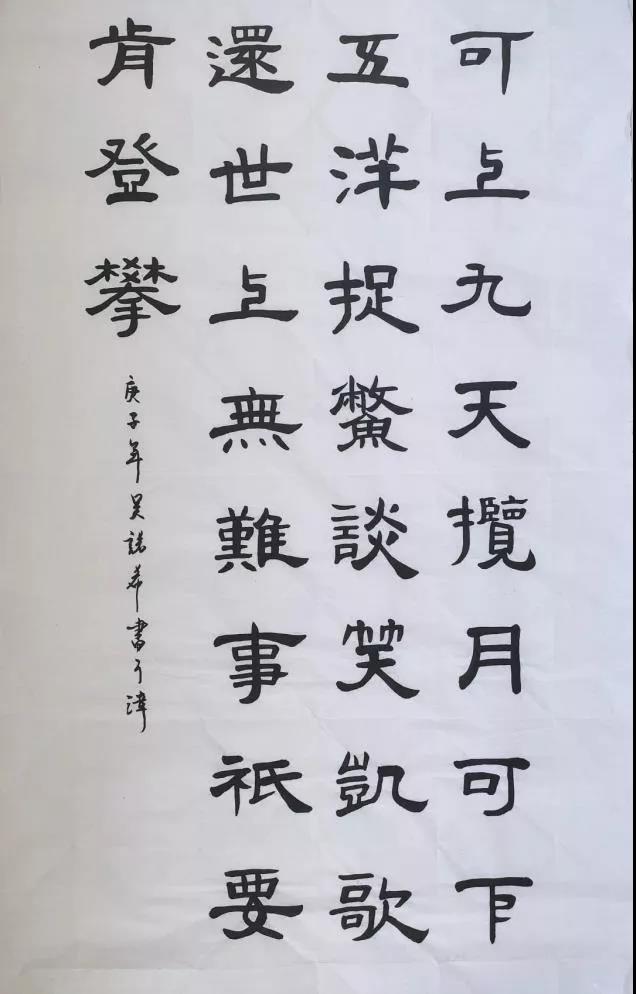 可上九天攬月可下
五洋捉鱉談笑凱歌
還世上無難事祇要
肯登攀
庚子年吴諾希書于津